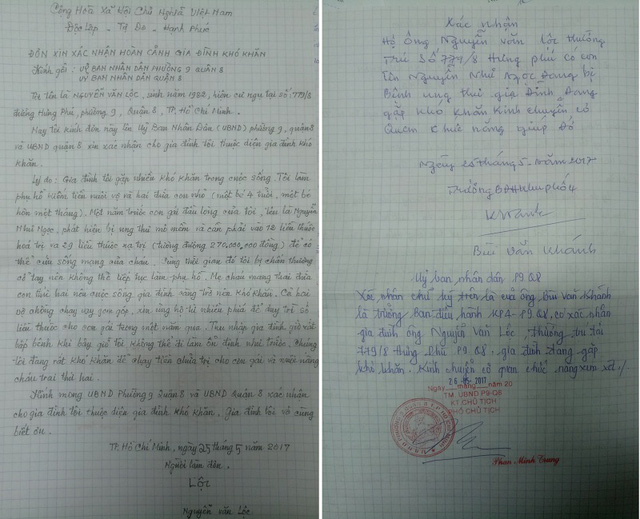 Cộng Hòa Xã Nội Chủ Nghĩa Việt Nam
Độc Lập - Tự Do - Hạnh Phúc
ĐƠN XIN XÁC NHẬN HOÀN CẢNH GIA ĐÌNH KHÓ KHĂN
Kính gởi: UỶ BAN NHÂN DÂN PHƯỜNG 9 QUẬN 8
UỶ BAN NHÂN DÂN QUẬN 8
Tôi tên là NGUYỄN VĂN LỘC, sinh năm 1982, hiện cư ngụ tại số 779/8
đường Hưng Phú, phường 9, Quận 8, TP. Hồ Chí Minh.
Nay tôi kính đơn này lên Uỷ Ban Nhân Dân (UBND) phường 9, quận 8
và UBND quận 8 xin xác nhận cho gia đình tôi thuộc diện gia đình khó
khăn.
Lý do: Gia đình tôi gặp nhiều khó khăn trong cuộc sống. Tôi làm
phụ hồ kiếm tiền nuôi vợ và hai đứa con nhỏ (một bé 4 tuổi, một bé
hơn một tháng). Một năm trước con gái đầu lòng của tôi, tên là Nguyễn
Như Ngọc, phát hiện bị ung thư mô mềm và cần phải vào 12 liều thuốc
hoá trị và 29 liều thuốc xạ trị (tương đương 270,000,000 đồng) để có
thể cứu sống mạng của cháu. Cùng thời gian đó tôi bị chấn thương
ở tay nên không thể tiếp tục làm phụ hồ. Mẹ cháu mang thai đứa
con thứ hai nên cuộc sống gia đình càng trở nên khó khăn. Cả hai
vợ chồng chạy vạy gom góp, xin ủng hộ từ nhiều phía để duy trì số
liều thuốc cho con gái trong một năm qua. Thu nhập gia đình giờ rất
bấp bênh khi bây giờ tôi không thể đi làm ổn định như trước. Chúng
tôi đang rất khó khăn để chạy tiền chữa trị cho con gái và nuôi nấng
cháu trai thứ hai.
Kính mong UBND Phường 9 Quận 8 và UBND Quận 8 xác nhận
cho gia đình tôi thuộc diện gia đình khó khăn. Gia đình tôi vô cùng
biết ơn.
TP. Hồ Chí Minh, ngày 25 tháng 5 năm 2017
Người làm đơn.
Lộc
Nguyễn Văn Lộc
Xác nhận
Hộ ông Nguyễn Văn Lộc thường
Trú Số 779/8 Hưng phú có con
Tên Nguyễn Như Ngọc Đang bị
Bệnh ung thư gia Đình Đang
gặp khó khăn Kính chuyển cơ
Quan chức năng giúp Đỡ
Ngày 25 tháng 5. năm 2017
Trưởng BĐH khu phố 4
Bùi Văn Khánh
Uỷ ban nhân dân P9 Q8
Xác nhận chữ ký trên là của ông Bùi Văn Khánh
là trưởng Ban điều hành KP4-P9-Q8, có xác nhận
gia đình ông Nguyễn Văn Lộc, Thường trú tại
779/8 Hưng Phú P9 Q8. gia đình đang gặp
khó khăn. Kính chuyển cơ quan chức năng xem xét./
26 -05- 2017
Ngày......tháng......năm 20
TM. UBND P9-Q8
KT. CHỦ TỊCH
PHÓ CHỦ TỊCH
Phan Minh Trung